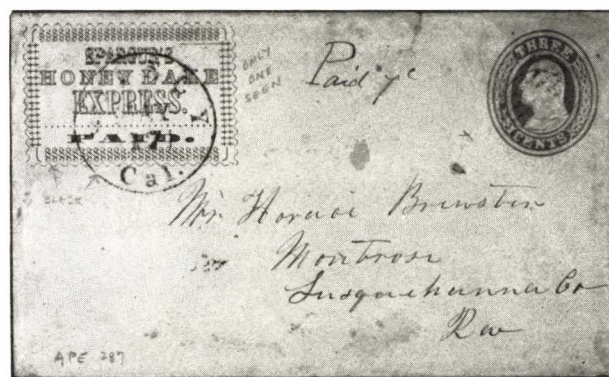 HONEY LAKE
EXPRESS.
PAID.
Cal.
ONLY
ONE
SEEN
Paid
THREE
CENTS
BLACK
Mr. Horace Brewster
Montrose
Susquehanna Co
APE 287